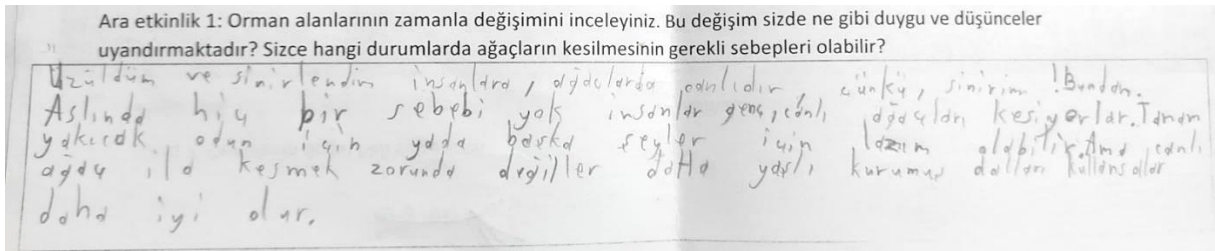 Ara etkinlik 1: Orman alanlarının zamanla değişimini inceleyiniz. Bu değişim sizde ne gibi duygu ve düşünceler
uyandırmaktadır? Sizce hangi durumlarda ağaçların kesilmesinin gerekli sebepleri olabilir?
Üzüldüm ve sinirlendim insanlara, ağaçlarda canlıdır, çünkü, sinirim !Bundan.
Aslında hiç bir sebebi yok insanlar genç, canlı ağaçları kesiyorlar. Tamam
yakacak odun için yada başka şeyler için lazım olabilir. Ama canlı
ağaç ila kesmek zorunda değiller daha yaşlı, kurumuş dalları kullansalar
daha iyi olur.